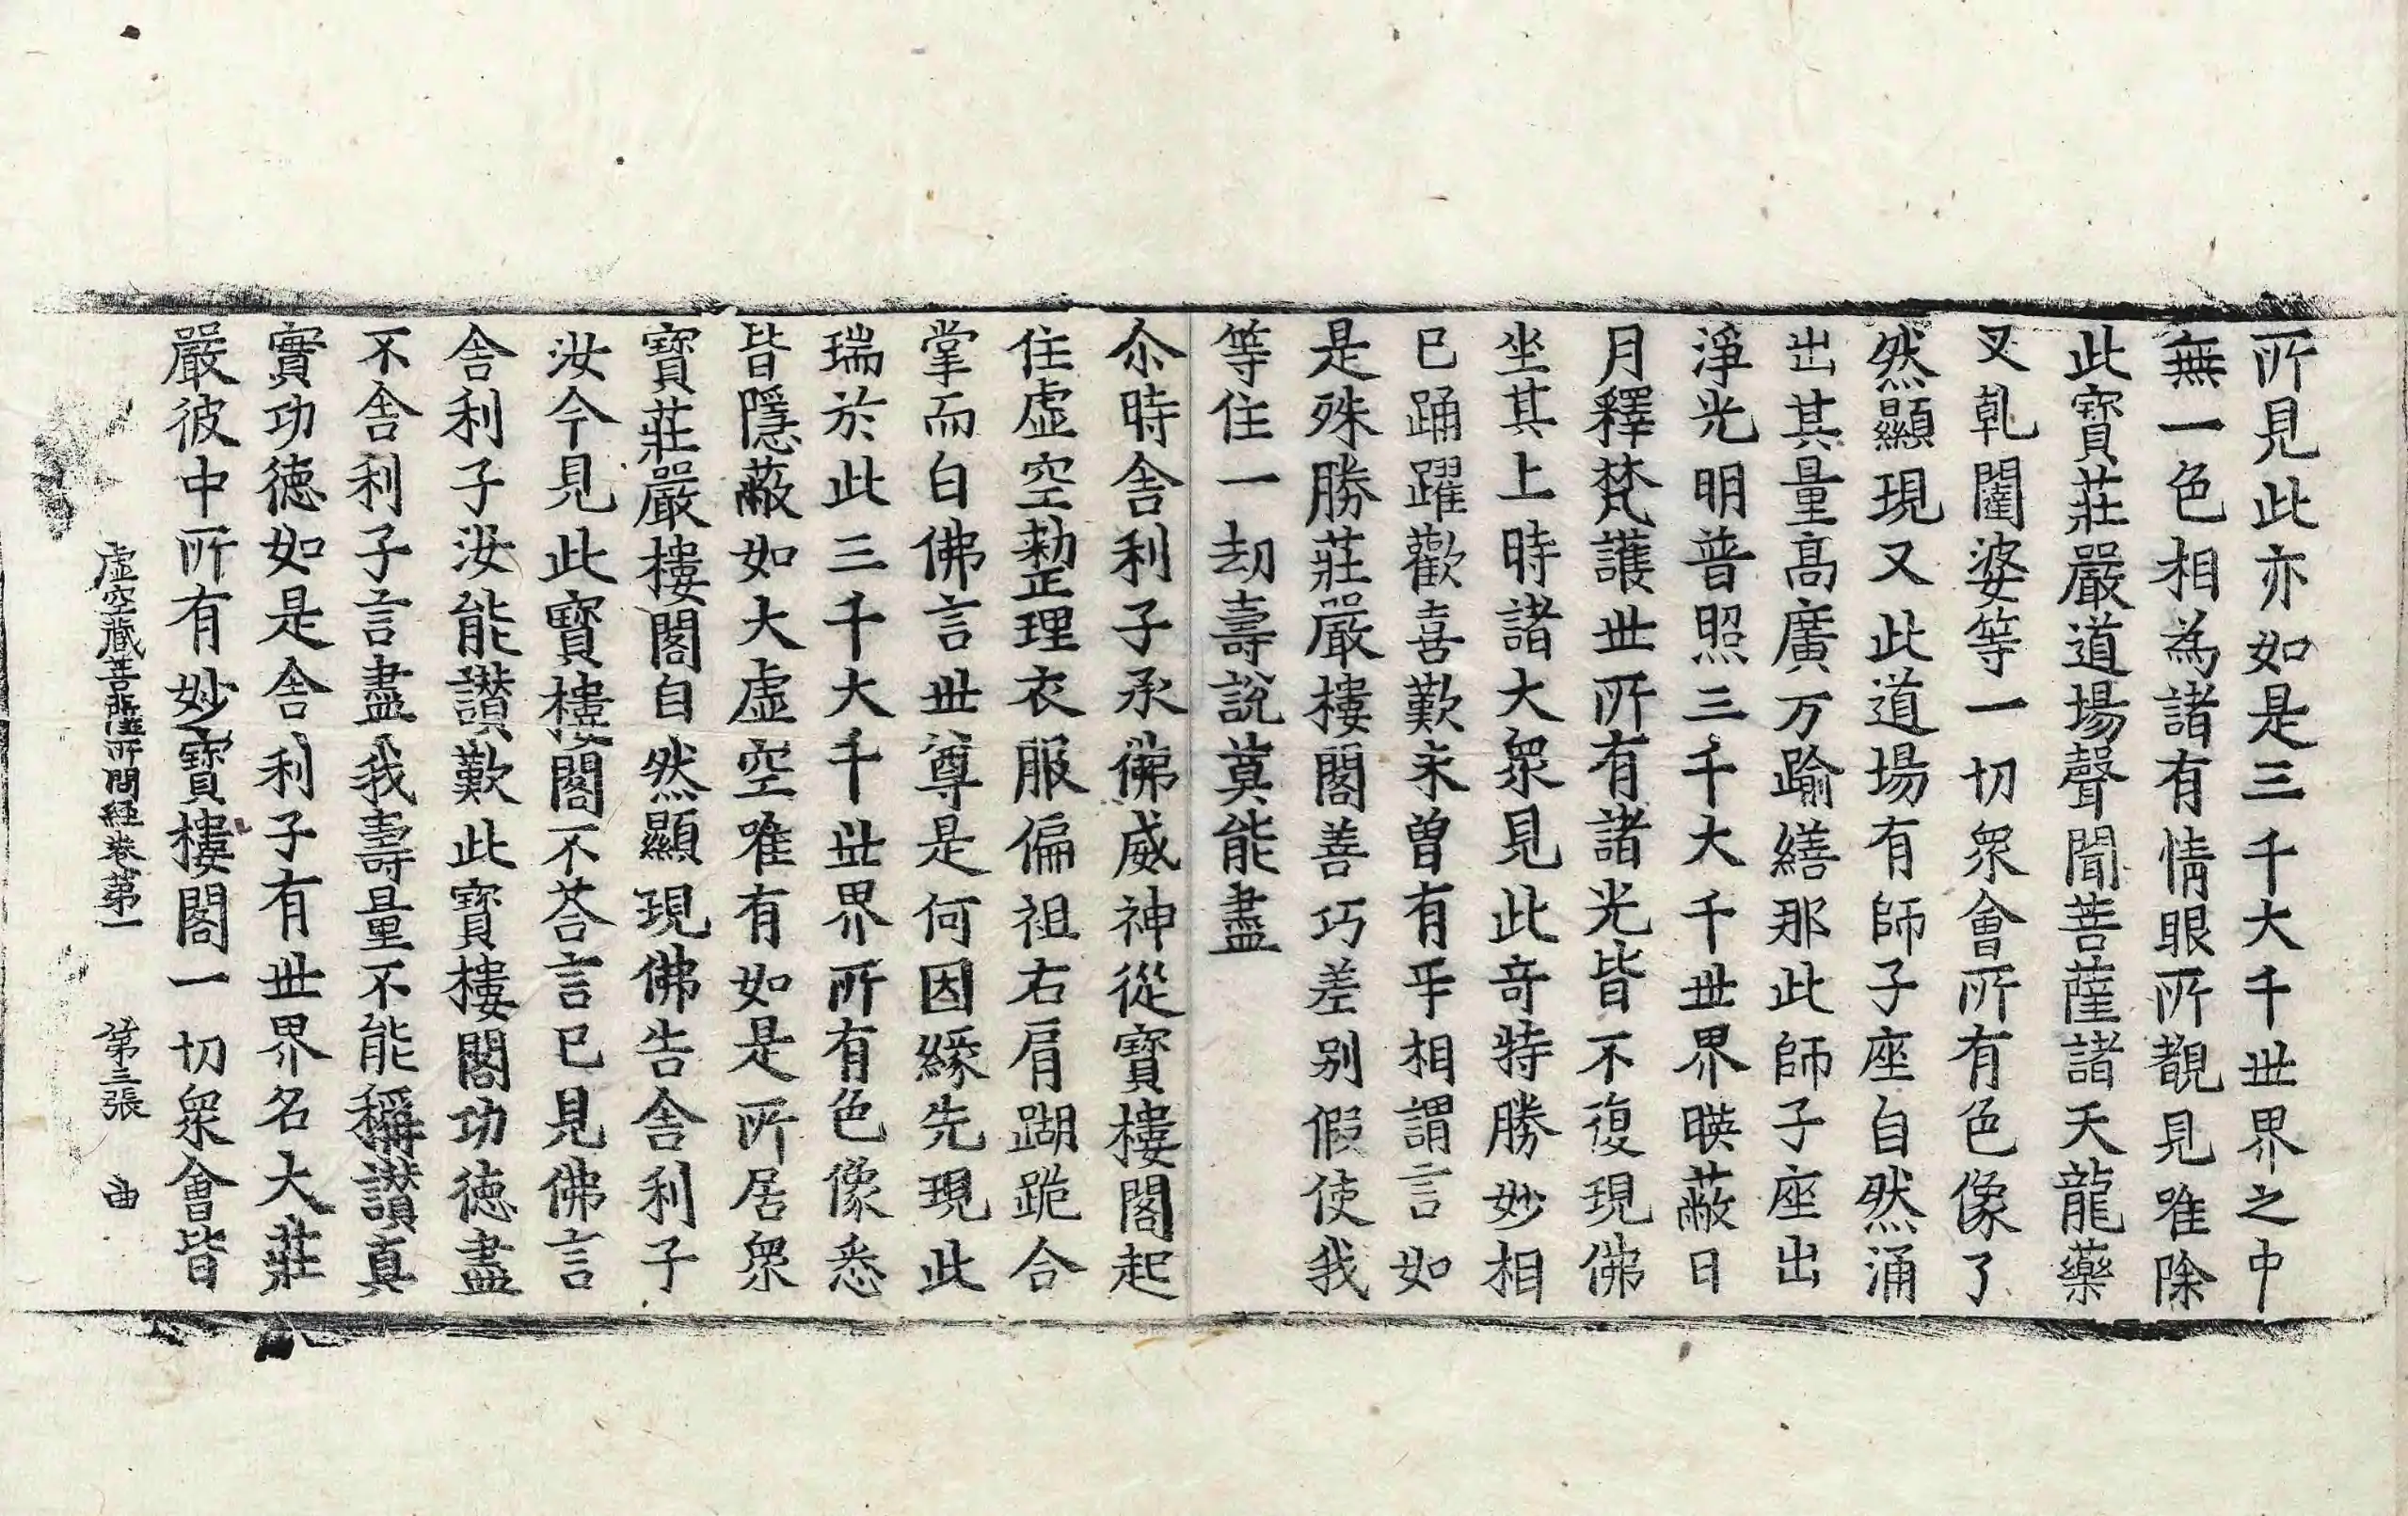 所見此亦如是三千大千世界之中
無一色相為諸有情眼所覩見唯除
此寶莊嚴道場聲聞菩薩諸天龍藥
叉乹闥婆等一切衆會所有色像了
然顯現又此道場有師子座自然涌
出其量髙廣万踰繕那此師子座出
淨光明普照三千大千世界暎蔽日
月釋梵護世所有諸光皆不復現佛
坐其上時諸大衆見此竒特勝妙相
已踊躍歡喜歎未曾有㸦相謂言如
是殊勝莊嚴樓閣善巧差别假使我
等住一劫壽說莫能盡
尒時舍利子承佛威神從寶樓閣起
住虛空整理衣服偏袒右肩䠒跪合
掌而白佛言世尊是何因緣先現此
瑞於此三千大千世界所有色像悉
皆隱蔽如大虛空唯有如是所居衆
寶莊嚴樓閣自然顯現佛告舍利子
汝今見此寶樓閣不荅言已見佛言
舍利子汝能讃歎此寶樓閣功徳盡
不舍利子言盡我壽量不能稱讃真
實功徳如是舍利子有世界名大莊
嚴彼中所有妙寶樓閣一切衆會皆
虛空藏菩薩所問経卷第一 第三張 曲